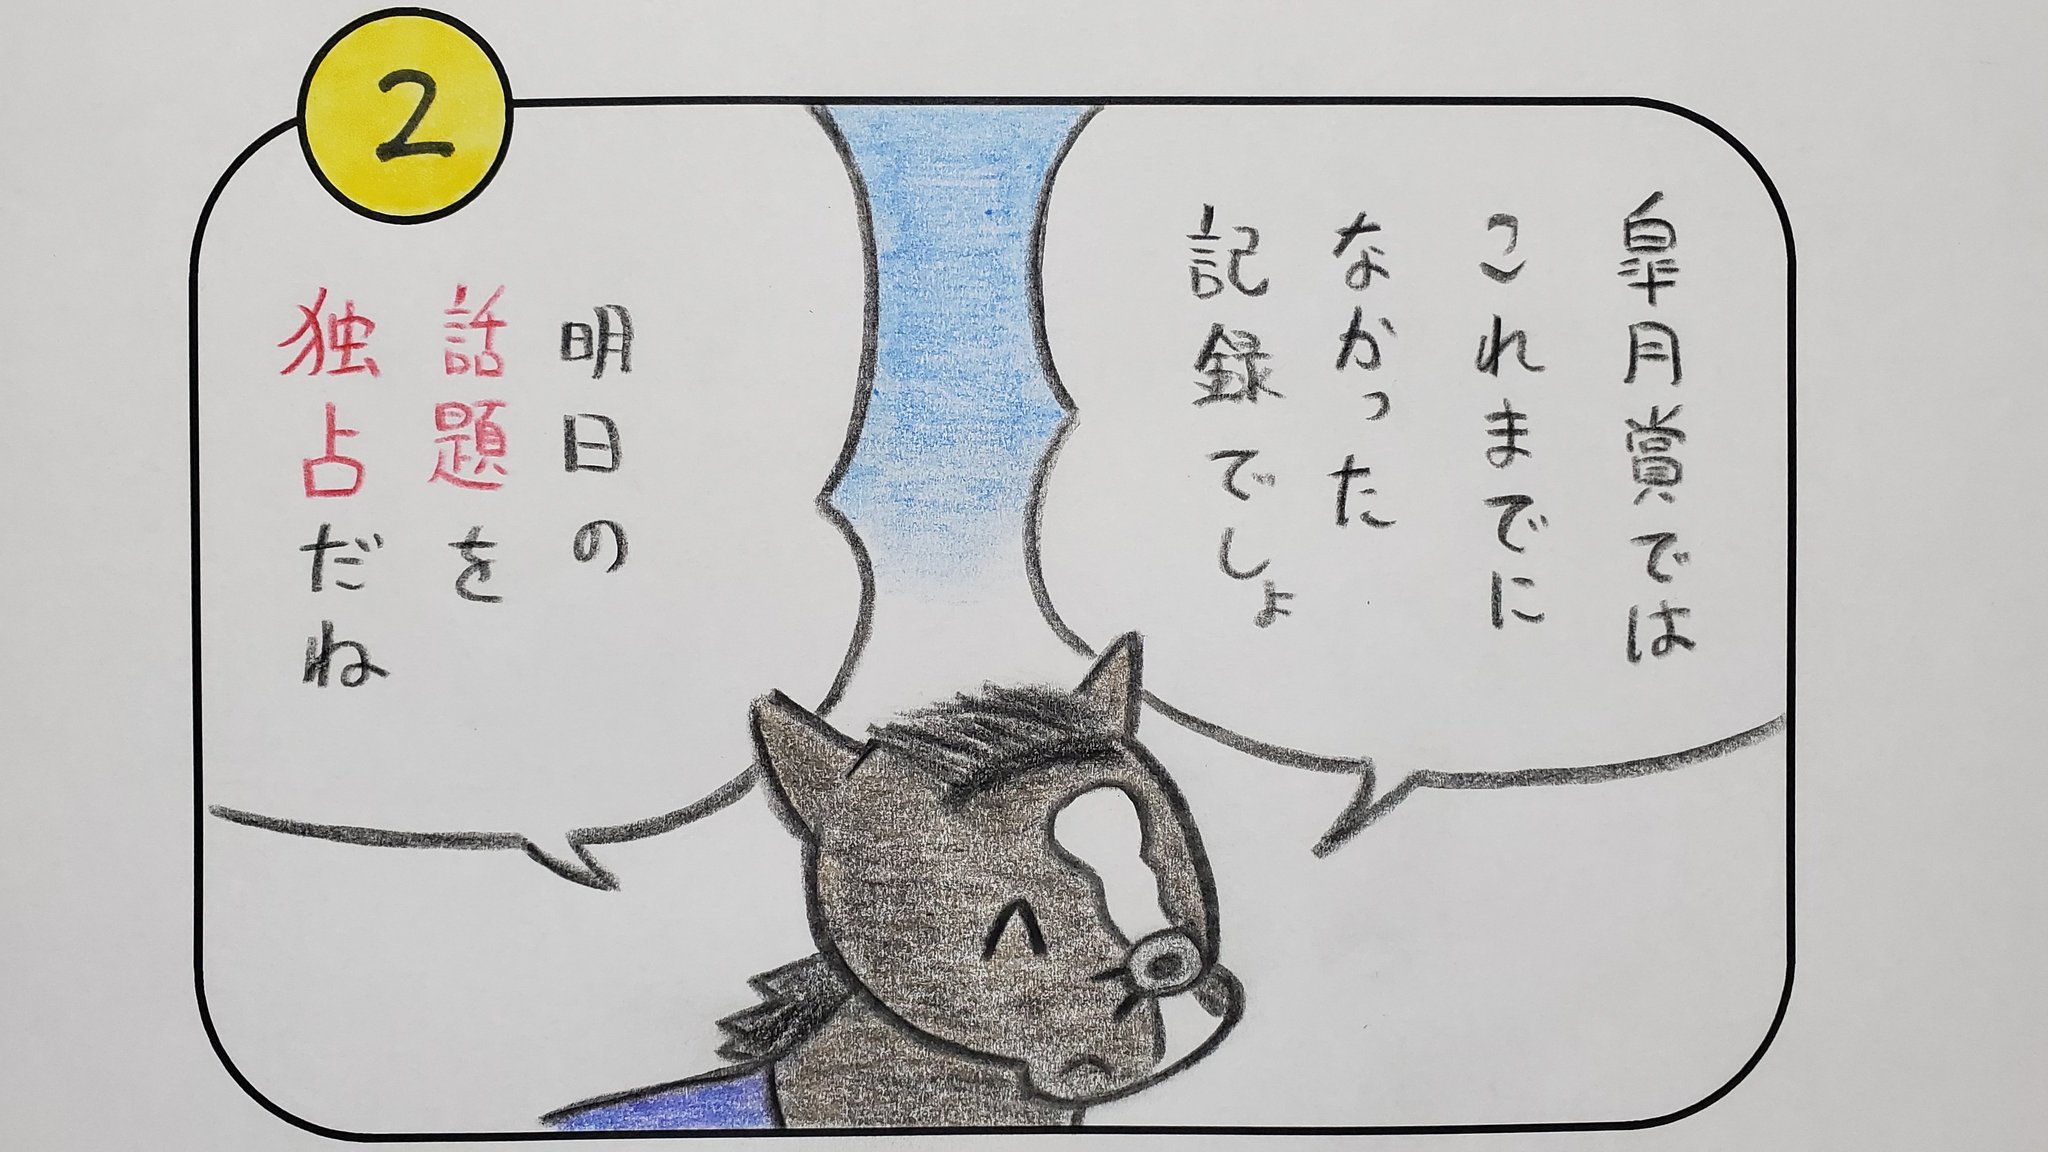 2
皐月賞では
これまでに
なかった
記録でしょ
明日の
話題を
独占だね